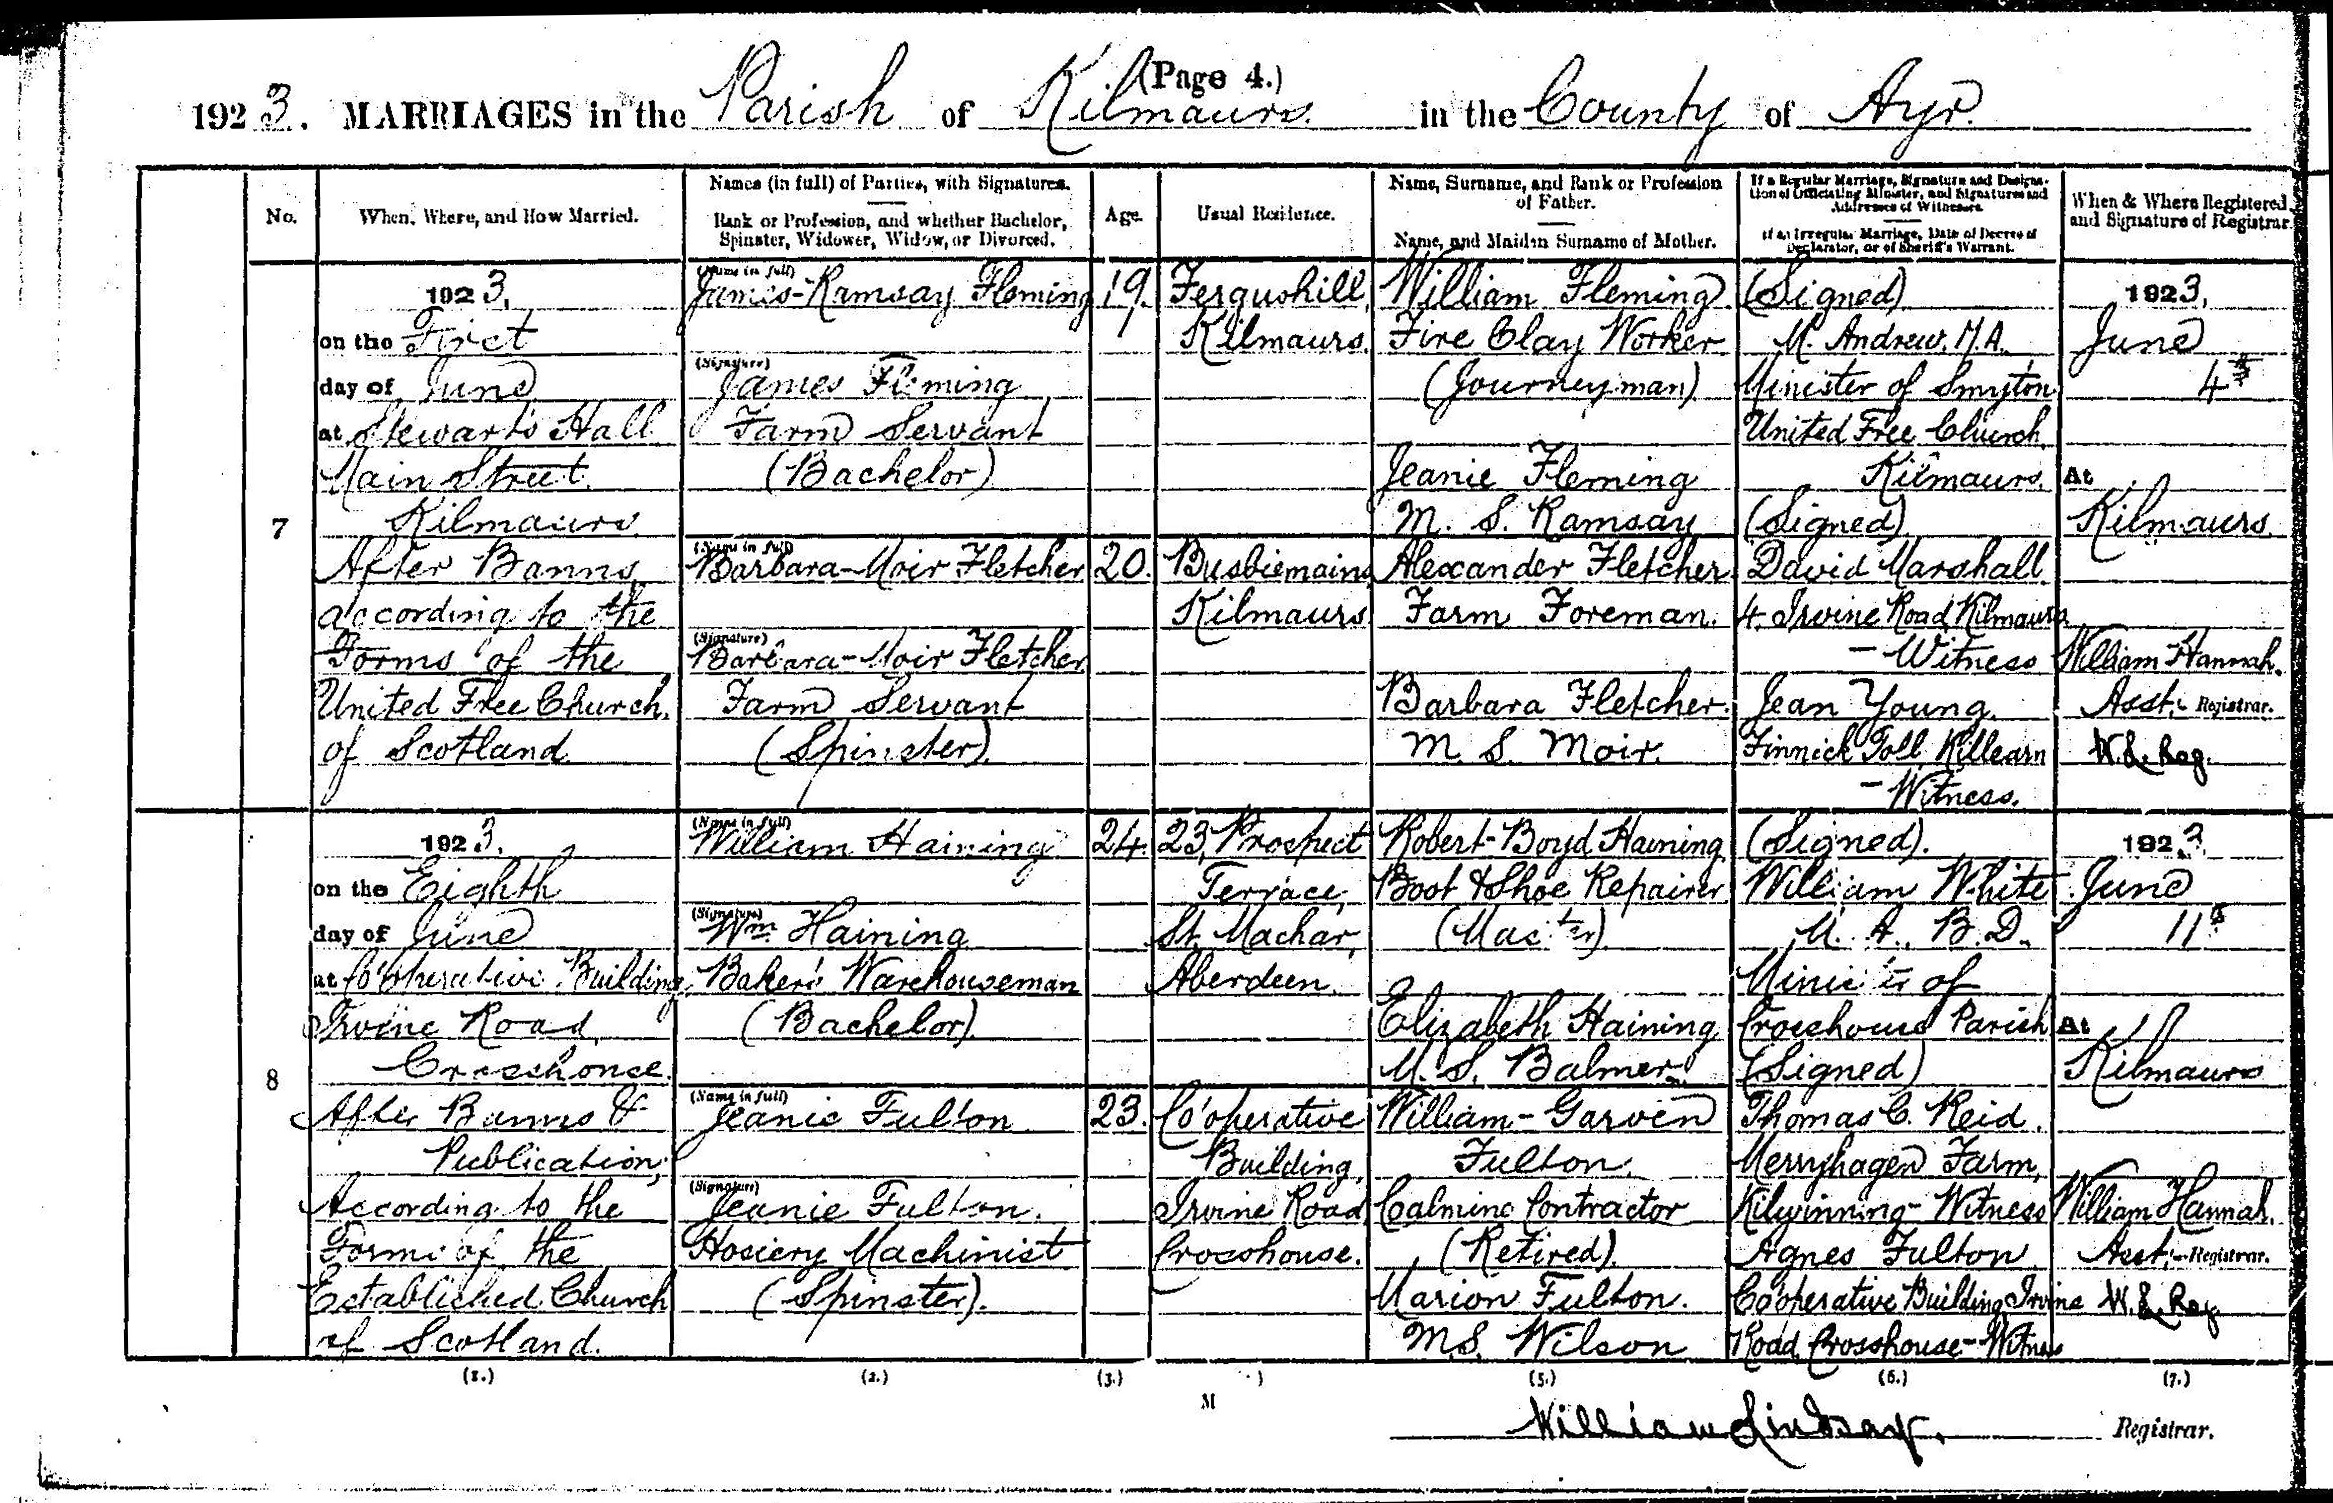 (Page 4.)
1923. MARRIAGES in the Parish of Kilmaurs. in the County of Ayr.
No.
When, Where, and How Married.
Names (in full) of Parties, with Signatures.
Rank or Profession, and whether Bachelor,
Spinster, Widower, Widow, or Divorced.
Age.
Usual Residence.
Name, Surname, and Rank or Profession
of Father.
Name, and Maiden Surname of Mother.
If a Regular Marriage, Signature and Designa-
tion of Officiating Minister, and Signatures and
Addresses of Witnesses.
If an Irregular Marriage, Date of Decree of
Declarator, or of Sheriff's Warrant.
When & Where Registered
and Signature of Registrar.
7
1923.
on the First
day of June
at Stewart's Hall
Main Street
Kilmaurs.
After Banns
according to the
Forms of the
United Free Church,
of Scotland
(Name in full)
James-Ramsay Fleming
(Signature)
James Fleming
Farm Servant
(Bachelor)
(Name in full)
Barbara-Moir Fletcher
(Signature)
Barbara-Moir Fletcher
Farm Servant
(Spinster).
19.
20.
Fergushill,
Kilmaurs.
Busbiemains
Kilmaurs
William Fleming
Fire Clay Worker
(Journeyman)
Jeanie Fleming
M. S. Ramsay
Alexander Fletcher
Farm Foreman.
Barbara Fletcher.
M. S. Moir.
(Signed)
M. Andrew. M.A.
Minister of Smyton
United Free Church
Kilmaurs.
(Signed)
David Marshall
4 Irvine Road Kilmaurs
- Witness
Jean Young.
Finnick Toll, Killearn
- Witness.
1923.
June
4th
At
Kilmaurs.
William Hannah.
Asst. Registrar.
W.L. Reg.
8
1923.
on the Eighth
day of June
at Co'operative Building,
Irvine Road,
Crosshouse.
After Banns &
Publication;
According to the
Forms of the
Established Church
of Scotland.
(Name in full)
William Haining
(Signature)
Wm. Haining
Baker's Warehouseman
(Bachelor).
(Name in full)
Jeanie Fulton
(Signature)
Jeanie Fulton.
Hosiery Machinist
(Spinster).
24.
23.
23, Prospect
Terrace,
St. Machar,
Aberdeen.
Co'operative
Building,
Irvine Road
Crosshouse.
Robert-Boyd Haining
Boot & Shoe Repairer
(Master)
Elizabeth Haining
M. S. Balmer.
William-Garven
Fulton.
Calmine Contractor
(Retired).
Marion Fulton.
M.S. Wilson
(Signed).
William White
M. A., B. D.
Minister of
Crosshouse Parish
(Signed)
Thomas C. Reid.
Merryhagen Farm,
Kilwinning- Witness
Agnes Fulton
Co'operative Building Irvine
Road Crosshouse- Witness
1923
June
11th
At
Kilmaurs
William Hannah.
Asst. Registrar.
W.L. Reg
(1.) (2.) (3.) (5.) (6.) (7.)
M
William Lindsay. Registrar.